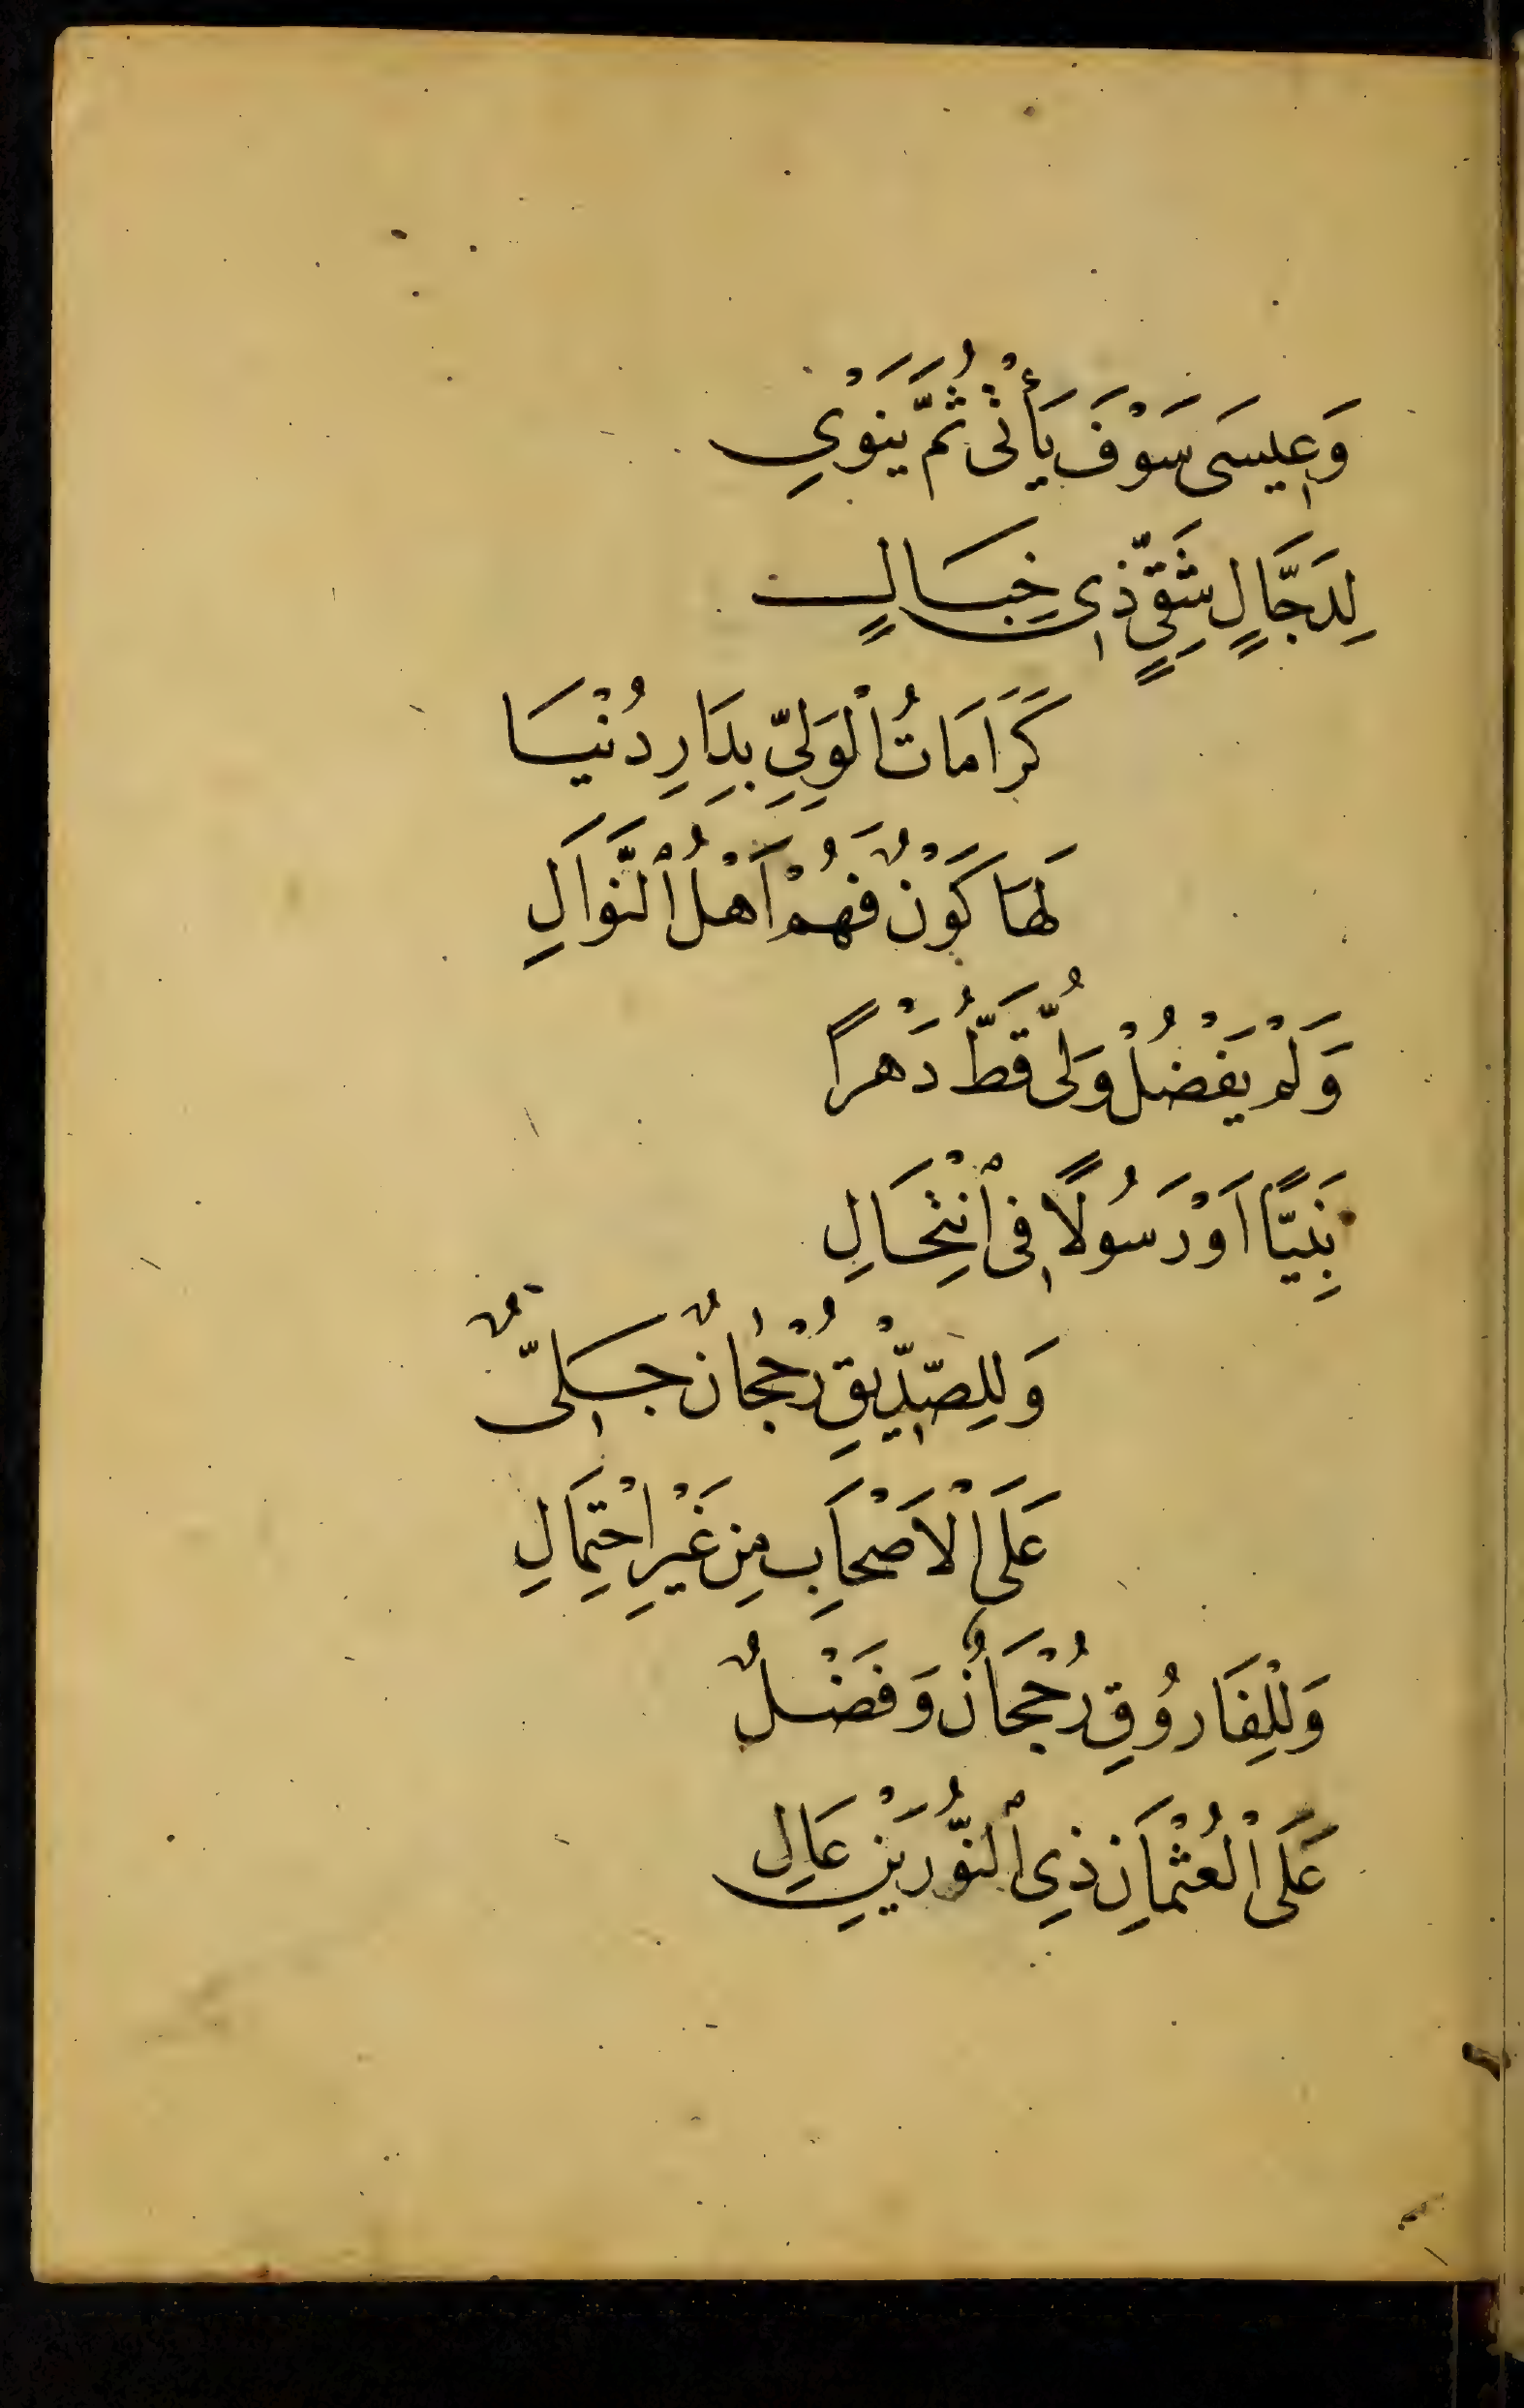 وَعِيسَى سَوْفَ يَأْتِى ثُمَّ يَنَوْىِ
لِدَجَّالٍ شَقِىٍّ ذِى خِبَالٍ
كَرَامَاتُ الْوَلِيِّ بِدَارِ دُنْيَا
لَهَا كَوْنٌ فَهُمْ اَهْلُ النَّوَالِ
وَلَمْ يَفْضُلْ وَلِىُّ قَطُّ دَهْرًا
نَبِيًّا اَوْ رَسُولًا فِى انْتِحَالِ
وَلِلصِّدِّيقِ رُجْحَانٌ جَلِىٌّ
عَلَى الْاَصْحَابِ مِنْ غَيْرِ احْتِمَالِ
وَلِلْفَارُوُقِ رُجْحَانٌ وَفَضْلٌ
عَلَى الْعُثْمَانِ ذِى النُّورَيْنِ عَالِ